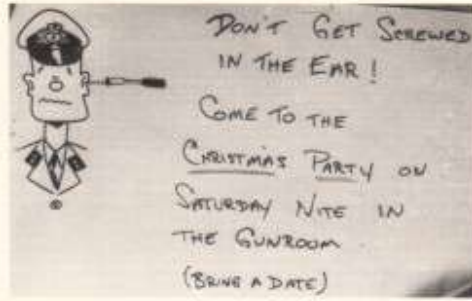 DON'T GET SCREWED
IN THE EAR!
COME TO THE
CHRISTMAS PARTY ON
SATURDAY NITE IN
THE GUNROOM
(BRING A DATE)